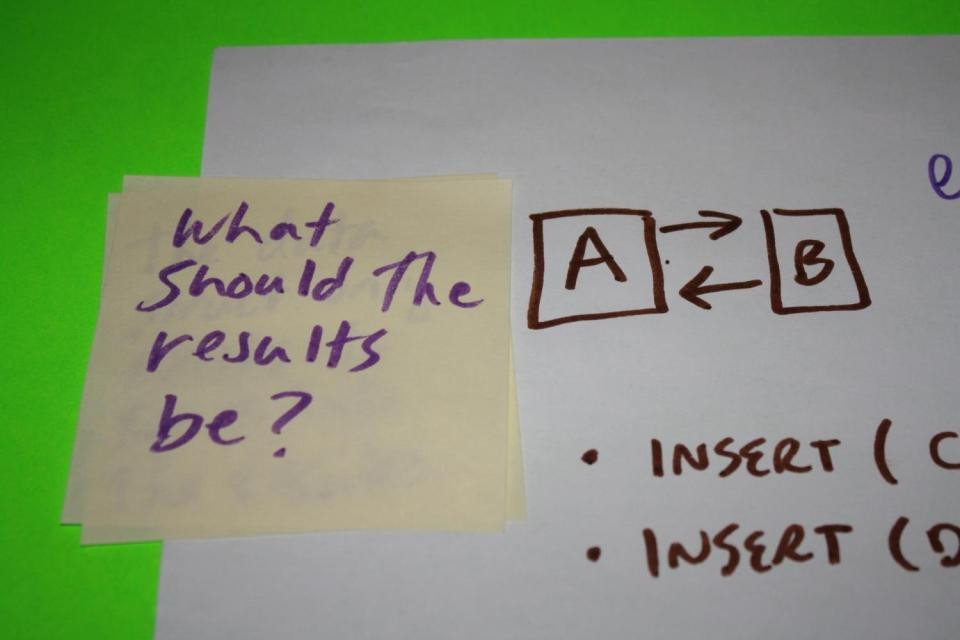 What
Should The
results
be?
A
B
e
• INSERT ( C
• INSERT ( D